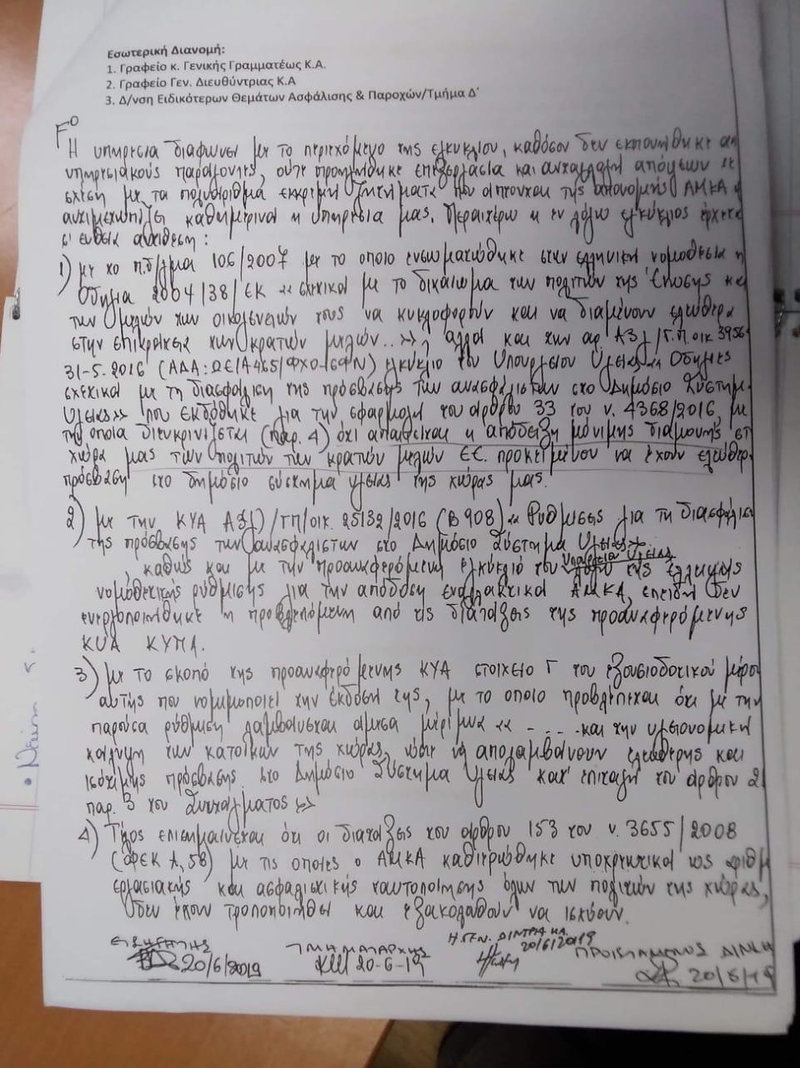 Εσωτερική Διανομή:
1. Γραφείο κ. Γενικής Γραμματέως Κ.Α.
2. Γραφείο Γεν. Διευθύντριας Κ.Α
3. Δ/νση Ειδικότερων Θεμάτων Ασφάλισης & Παροχών/Τμήμα Δ΄
Η υπηρεσία διαφωνεί με το περιεχόμενο της εγκυκλίου, καθόσον δεν εκπονήθηκε
υπηρεσιακούς παράγοντες, ούτε προηγήθηκε επεξεργασία και ανταλλαγή απόψεων σε
σχέση με τα πολυάριθμα εκκρεμή ζητήματα που άπτονται της απονομής ΑΜΚΑ
αντιμετωπίζει καθημερινά η υπηρεσία μας. Περαιτέρω η εν λόγω εγκύκλιος έρχεται
σ' ευθεία αντίθεση:
1) με το π.δ/γμα 106/2007 με το οποίο ενσωματώθηκε στην ελληνική νομοθεσία η
Οδηγία 2004/38/ΕΚ «σχετικά με το δικαίωμα των πολιτών της Ένωσης και
των μελών των οικογενειών τους να κυκλοφορούν και να διαμένουν ελεύθερα
στην επικράτεια των κρατών μελών...», αλλά και την αρ. Α3γ/Γ.Π.οικ 3956
31-5-2016 (ΑΔΑ: εγκύκλιο του Υπουργείου Υγείας «Οδηγίες
σχετικά με τη διασφάλιση της πρόσβασης των ανασφάλιστων στο Δημόσιο Σύστημ
Υγείας» που εκδόθηκε για την εφαρμογή του άρθρου 33 του ν. 4368/2016, με
την οποία διευκρινίζεται (παρ. 4) ότι απαιτείται η απόδειξη μόνιμης διαμονής στ
χώρα μας των πολιτών των κρατών μελών ΕΕ. προκειμένου να έχουν ελεύθερ
πρόσβαση στο δημόσιο σύστημα υγείας της χώρας μας.
2) με την ΚΥΑ Α3(γ)/ΓΠ/οικ. 25132/2016 (Β 908) «Ρυθμίσεις για τη διασφάλιση
της πρόσβασης των ανασφάλιστων στο Δημόσιο Σύστημα Υγείας»
καθώς και με την προαναφερόμενη εγκύκλιο του Υπουργείου Υγείας της
νομοθετικής ρύθμισης για την απόδοση εναλλακτικού ΑΜΚΑ, επειδή δεν
ενεργοποιήθηκε η προβλεπόμενη από τις διατάξεις της προαναφερόμενης
ΚΥΑ ΚΥΠΑ.
3) με το σκοπό της προαναφερόμενης ΚΥΑ στοιχείο Γ του εξουσιοδοτικού μέρου
αυτής που νομιμοποιεί την έκδοσή της, με το οποίο προβλέπεται ότι με την
παρούσα ρύθμιση λαμβάνεται άμεσα μέριμνα «.....και την υγειονομική
κάλυψη των κατοίκων της χώρας, ώστε να απολαμβάνουν ελεύθερης και
ισότιμης πρόσβασης στο Δημόσιο Σύστημα Υγείας κατ' επιταγή του άρθρου 2
παρ. 3 του Συντάγματος»
4) Τέλος επισημαίνεται ότι οι διατάξεις του άρθρου 153 του ν. 3655/2008
(ΦΕΚ Α, 58) με τις οποίες ο ΑΜΚΑ καθιερώθηκε υποχρεωτικά ως αριθμ
εργασιακής και ασφαλιστικής ταυτοποίησης όλων των πολιτών της χώρας,
δεν έχουν τροποποιηθεί και εξακολουθούν να ισχύουν.
ΕΙΣΗΓΗΤΗΣ ΤΜΗΜΑΤΑΡΧΗΣ Η ΓΕΝ. Δ/ΝΤΡΙΑ ΚΑ. ΠΡΟΙΣΤΑΜΕΝΟΣ Δ/ΝΣΗ
20/6/2019 20-6-19 20/6/2019 20/6/19